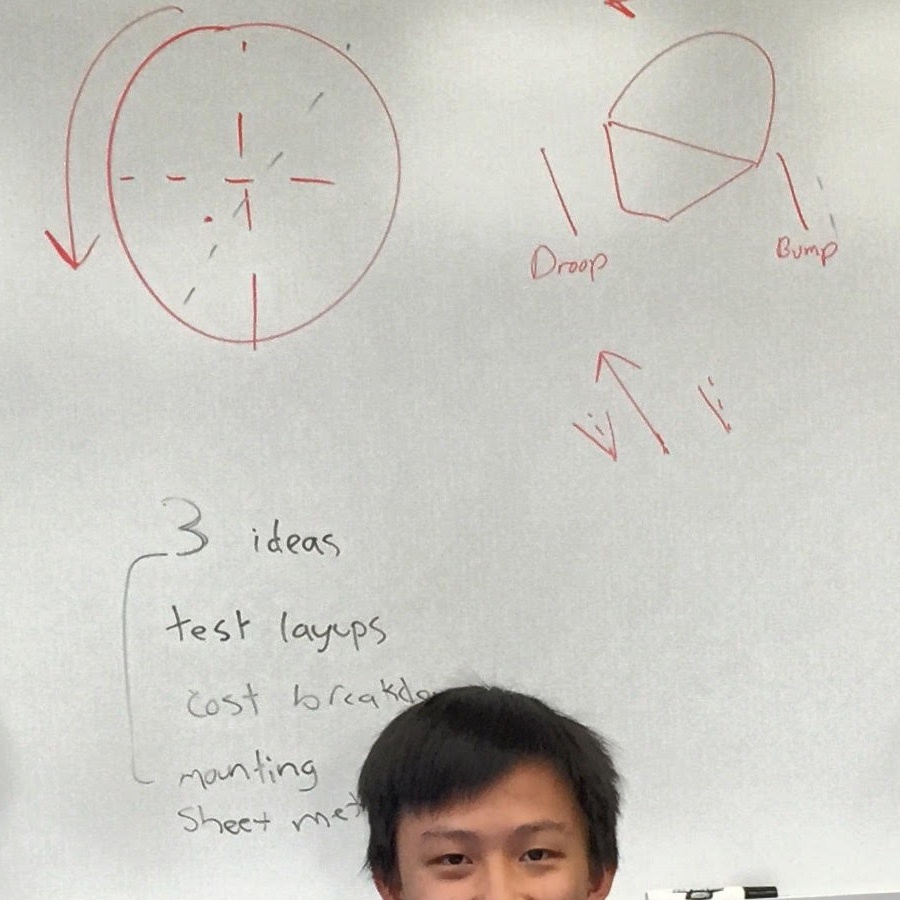 Droop
Bump
3 ideas
test layups
cost breakdo
mounting
sheet met